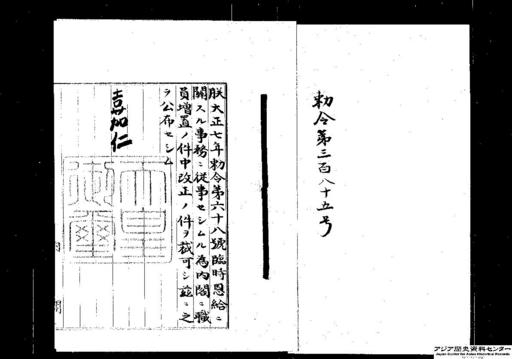 勅令第三百八十五号
朕大正七年勅令第六十八號臨時恩給ニ
關スル事務ニ從事セシムル為内閣ニ職
員增置ノ件中改正ノ件ヲ裁可シ茲ニ之
ヲ公布セシム
嘉仁
天皇
御璽
内
閣
アジア歴史資料センター
Japan Center for Asian Historical Records